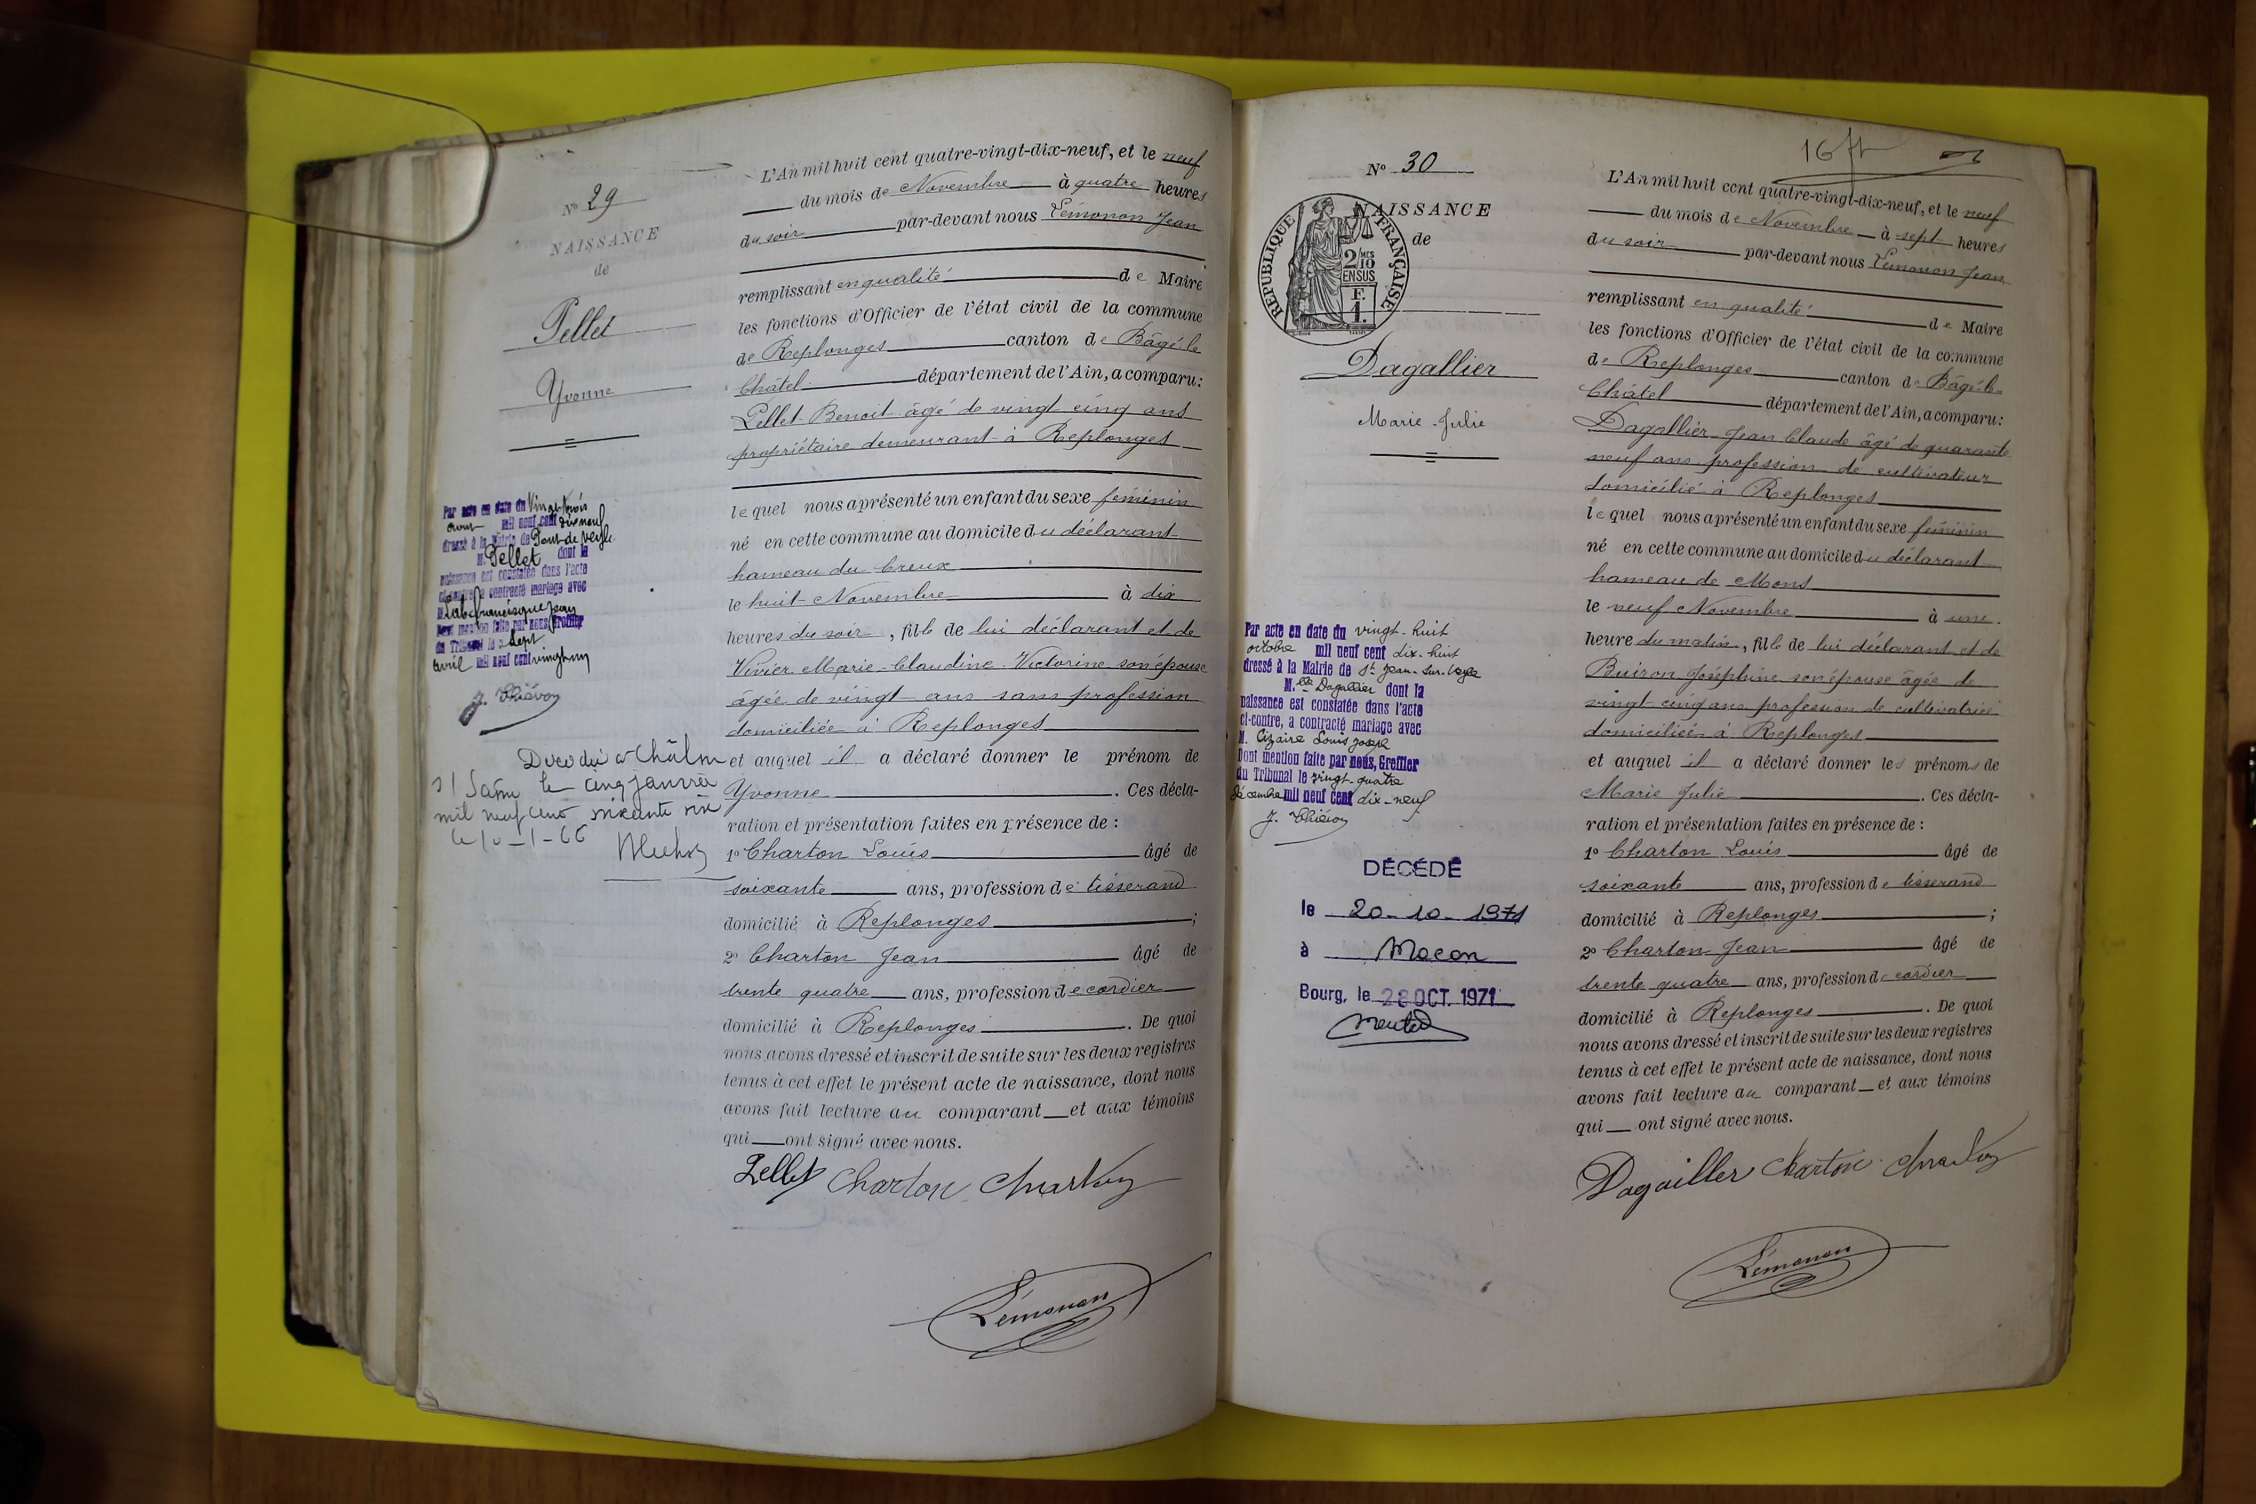 Nº 29
NAISSANCE
de
Pellet
Yvonne
Par acte en date du Vingt trois
aout mil neuf cent dix neuf
dressé à la Mairie de Pont-de-Veyle
M. Pellet dont la
naissance est constatée dans l'acte
ci-contre a contracté mariage avec
M. francisque Jean
Dont mention faite par nous, Greffier
du Tribunal le Sept
avril mil neuf cent vingt un
J. Thiévon
Décédée à Châlon
s/ Saône le cinq janvier
mil neuf cent soixante six
le 10-1-66
L'An mil huit cent quatre-vingt-dix-neuf, et le neuf
du mois de Novembre à quatre heures
du soir par-devant nous Lémonon Jean
remplissant en qualité de Maire
les fonctions d'Officier de l'état civil de la commune
de Replonges canton de Bâgé-le
Châtel département de l'Ain, a comparu:
Pellet Benoit âgé de vingt cinq ans
propriétaire demeurant à Replonges
lequel nous a présenté un enfant du sexe féminin
né en cette commune au domicile du déclarant
hameau du Creux
le huit Novembre à dix
heures du soir, fille de lui déclarant et de
Vivier Marie-Claudine Victorine son épouse
âgée de vingt ans sans profession
domiciliée à Replonges
et auquel il a déclaré donner le prénom de
Yvonne. Ces décla-
ration et présentation faites en présence de :
1º Charton Louis âgé de
soixante ans, profession de tisserand
domicilié à Replonges ;
2º Charton Jean âgé de
trente quatre ans, profession de cordier
domicilié à Replonges. De quoi
nous avons dressé et inscrit de suite sur les deux registres
tenus à cet effet le présent acte de naissance, dont nous
avons fait lecture au comparant et aux témoins
qui ont signé avec nous.
Pellet Charton Charton
Lémonon
Nº 30
NAISSANCE
de
RÉPUBLIQUE FRANÇAISE
2/10 MES
EN SUS
F.
1.
Dagallier
Marie Julie
Par acte en date du vingt-huit
octobre mil neuf cent dix-huit
dressé à la Mairie de St Jean-sur-Veyle
M.elle Dagallier dont la
naissance est constatée dans l'acte
ci-contre, a contracté mariage avec
M. Cizaire Louis Joseph
Dont mention faite par nous, Greffier
du Tribunal le vingt-quatre
décembre mil neuf cent dix-neuf
J. Thiévon
DÉCÉDÉ
le 20-10-1971
à Macon
Bourg, le 28 OCT. 1971
L'An mil huit cent quatre-vingt-dix-neuf, et le neuf
du mois de Novembre à sept heures
du soir par-devant nous Lémonon Jean
remplissant en qualité de Maire
les fonctions d'Officier de l'état civil de la commune
de Replonges canton de Bâgé-le
Châtel département de l'Ain, a comparu:
Dagallier Jean Claude âgé de quarante
neuf ans profession de cultivateur
domicilié à Replonges
lequel nous a présenté un enfant du sexe féminin
né en cette commune au domicile du déclarant
hameau de Mons
le neuf Novembre à une
heure du matin, fille de lui déclarant et de
Buiron Joséphine son épouse âgée de
vingt cinq ans profession de cultivatrice
domiciliée à Replonges
et auquel il a déclaré donner les prénoms de
Marie Julie. Ces décla-
ration et présentation faites en présence de :
1º Charton Louis âgé de
soixante ans, profession de tisserand
domicilié à Replonges ;
2º Charton Jean âgé de
trente quatre ans, profession de cordier
domicilié à Replonges. De quoi
nous avons dressé et inscrit de suite sur les deux registres
tenus à cet effet le présent acte de naissance, dont nous
avons fait lecture au comparant et aux témoins
qui ont signé avec nous.
Dagailler Charton Charton
Lémonon